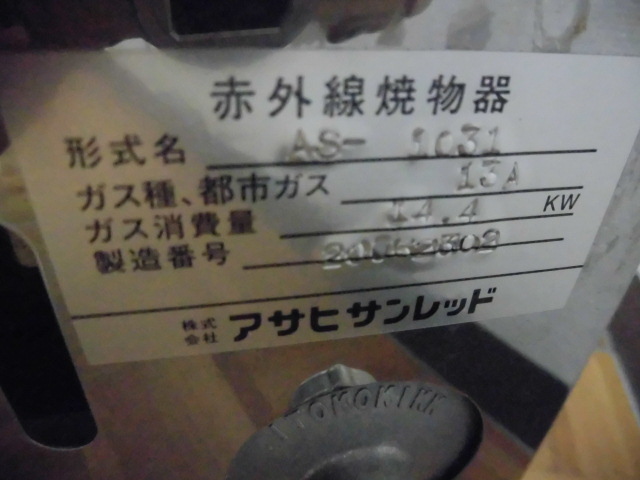 赤外線焼物器
形式名 AS- 1031
ガス種、都市ガス 13A
ガス消費量 14.4 KW
製造番号
株式会社 アサヒサンレッド
ITOMOKI KK